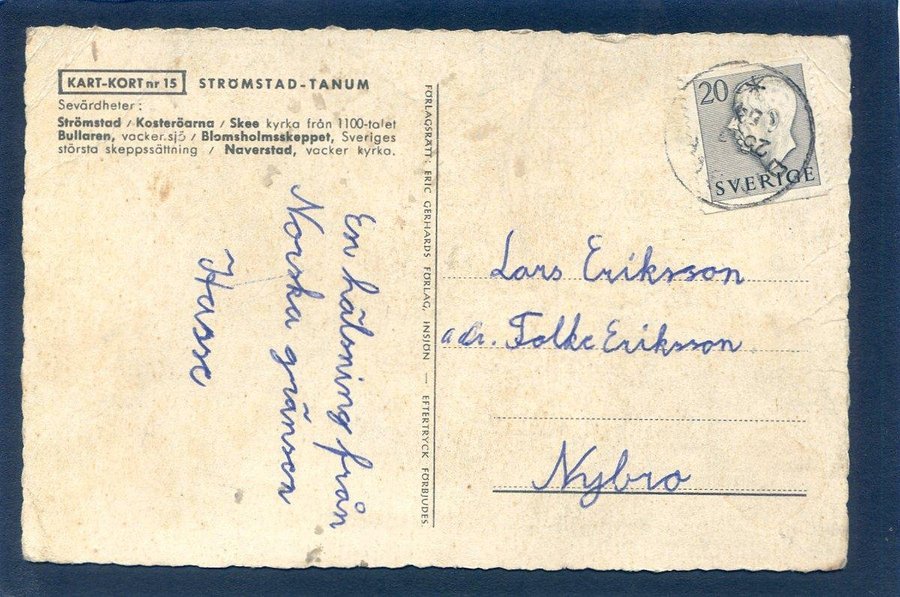 KART-KORT nr 15 STRÖMSTAD-TANUM
Sevärdheter:
Strömstad / Kosteröarna / Skee kyrka från 1100-talet
Bullaren, vacker sjö / Blomsholmsskeppet, Sveriges
största skeppssättning / Naverstad, vacker kyrka.
En hälsning från
Norska gränsen
Hasse
FÖRLAGSRÄTT: ERIC GERHARDS FÖRLAG, INSJÖN — EFTERTRYCK FÖRBJUDES.
20
SVERIGE
Lars Eriksson
adr. Folke Eriksson
Nybro